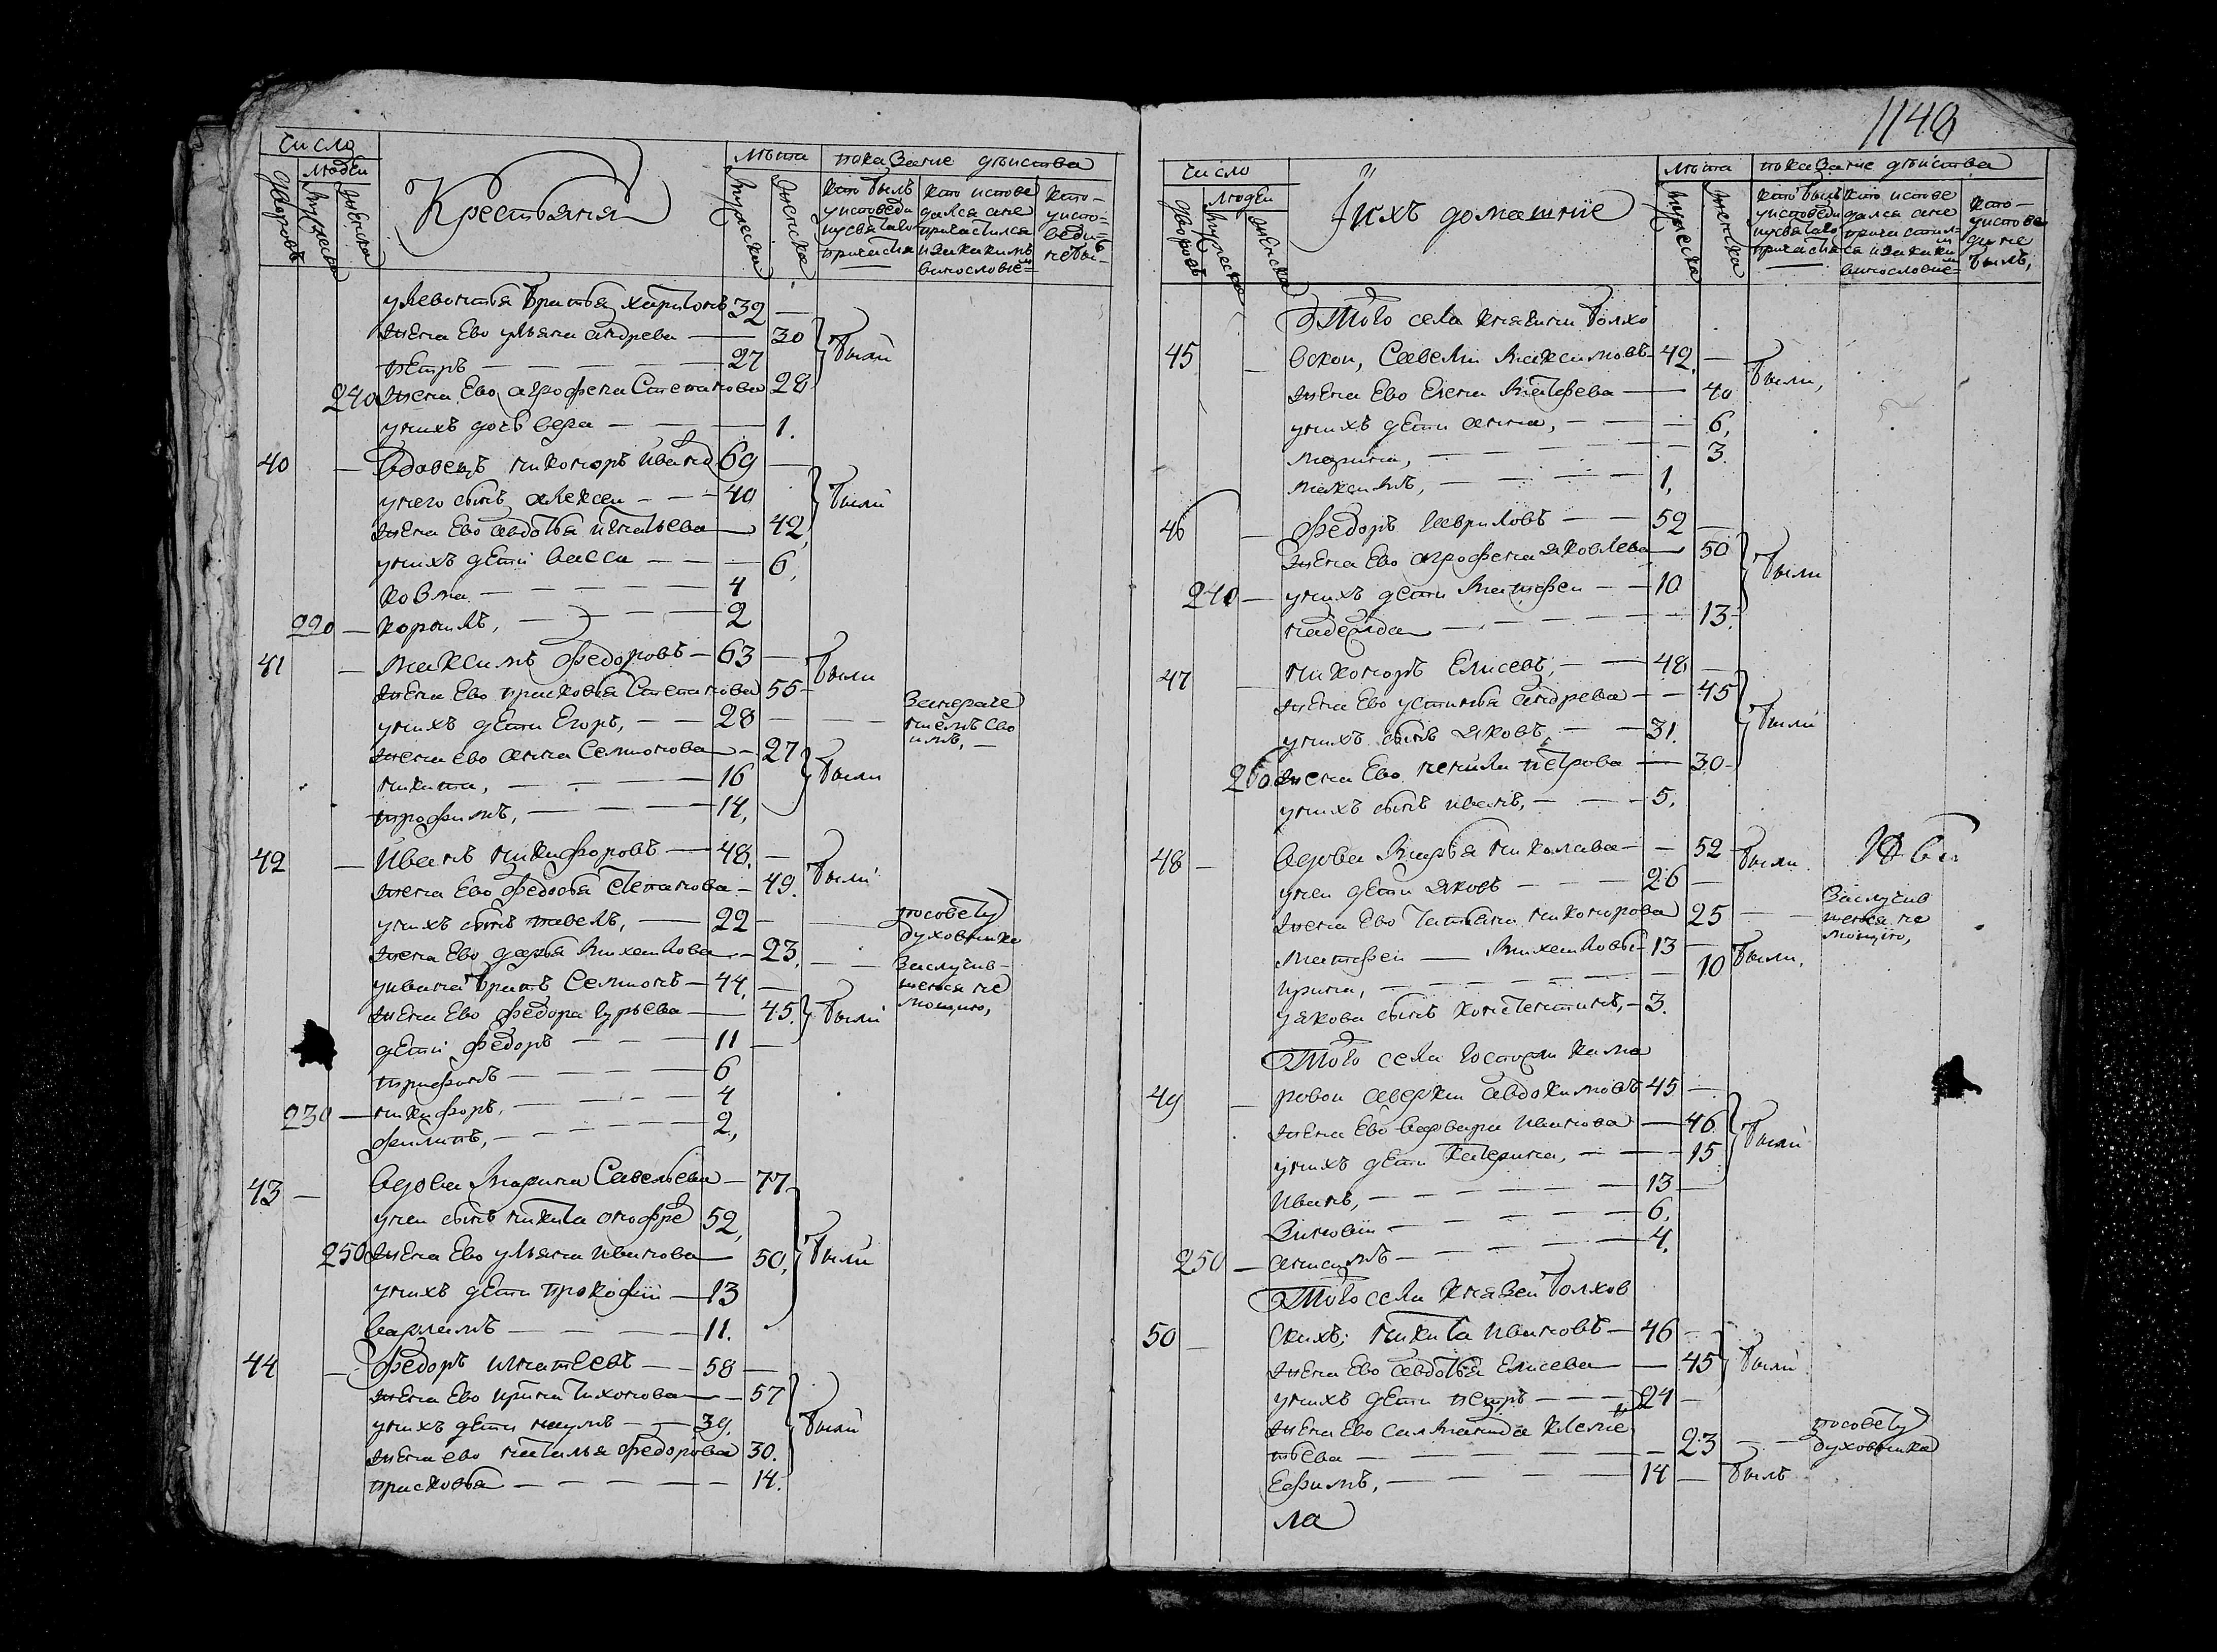 число
людей
дворовъ
мужеска
женска
Крестьяня
лѣта
мужеска
женска
показание действа
кто былъ у исповеди и у святаго причастиа
кто исповедался а не причастился и за какимъ винословиемъ
кто у исповеди не бы
у Левонтья братья, харитонъ 32 —
жена Ево ульяна андрева — 30 были
петръ — 27
240 жена Ево агрофена Степанова 28
у нихъ дочь вера — 1.
40 — вдовецъ никоноръ ивано 69 —
у него сынъ алексеи — 40 были
жена Ево авдотья игнатьева — 42,
у нихъ дети васса — 6,
козма — 4
220 — корнилъ, — 2
41 — максимъ федоровъ — 63 — были
жена Ево прасковья Степанова 55 —
у нихъ дети Егоръ, — 28 — за нераче нием Сво имъ, —
жена ево анна Семионова — 27 были
никита, — 16
трофимъ, — 14,
42 — Иванъ никифоровъ — 48, —
жена Ево федосья степанова — 49. были
у нихъ сынъ павелъ, — 22 — по совету духовника
жена Ево дарья михаилова — 23, — За случив шеюся не мощию,
у ивана братъ Семионъ — 44, —
жена Ево федора гурьева — 45. были
дети федоръ — 11 —
трифонъ — 6
230 — никифоръ, — 4
филипъ, — 2,
43 — вдова марина Савельева — 77
у неи сынъ никита онофре 52,
250 жена Ево ульяна иванова — 50, были
у нихъ дети прокофии — 13
варламъ — 11.
44 — федоръ игнатьевъ — 58 —
жена Ево ирина тихонова — 57
у нихъ дети наумъ — 39, были
жена ево наталья федорова 30.
прасковья — 14.
1148
число
людеи
дворовъ
мужеска
женска
И ихъ домашние
лѣта
мужеска
женска
показание действа
кто былъ у исповеди и у святаго причастиа
кто исповедался а не причастился и за какимъ винословиемъ
кто у исповеди не былъ,
Того села княгини болхо
45 — вскои, Савелии максимовъ — 42, —
жена Ево Елена матфева — 40 были,
у нихъ дети анна, — 6,
марина, — 3.
максимъ, — 1,
46 — федоръ гавриловъ — 52 —
жена Ево агрофена яковлева — 50 были
240 — у нихъ дети матфеи — 10
надежда — 13.
47 — никоноръ Елисевъ, — 48 —
жена Ево устинья андрева — 45 были
у нихъ сынъ яковъ, — 31.
260 жена Ево ненила петрова — 30 —
у нихъ сынъ иванъ, — 5,
48 — вдова марья николава — 52 — были
у неи дети яковъ — 26 —
жена Ево татьяна никонорова 25 — За случив шеюся не мощию,
матфеи — михаиловы — 13 —
ирина, — 10 были,
у якова сынъ константинъ, — 3.
Того села госпожи кома
49 — ровои аверкии авдокимовъ 45 —
жена Ево варвара иванова — 46 были
у нихъ дети катерина, — 15
Иванъ, — 13 —
Зиновии — 6,
250 — анисимъ — 4.
Того села князеи болхов
50 — скихъ; никита ивановъ — 46 —
жена Ево авдотья Елисева — 45 были
у нихъ дети петръ — 24 —
жена Ево саламанида клемен
тьева — 23 — по совету духовника
Ефимъ, — 14 — былъ
ла